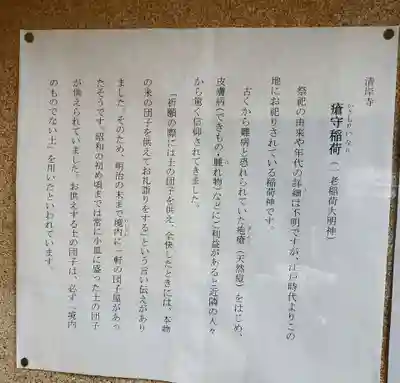 清岸寺
瘡守稲荷（一老稲荷大明神）
かさもりいなり
祭祀の由来や年代の詳細は不明ですが、江戸時代よりこの
地にお祀りされている稲荷神です。
古くから難病と恐れられていた疱瘡（天然痘）をはじめ、
皮膚病（できもの・腫れ物）などにご利益があると近隣の人々
から篤く信仰されてきました。
「祈願の際には土の団子を供え、全快したときには、本物
の米の団子を供えてお礼詣りをする」という言い伝えがあり
ました。そのため、明治の末まで境内に一軒の団子屋があっ
たそうです。昭和の初め頃までは常に小皿に盛った土の団子
が供えられていました。お供えする土の団子は、必ず「境内
のものでない土」を用いたといわれています。